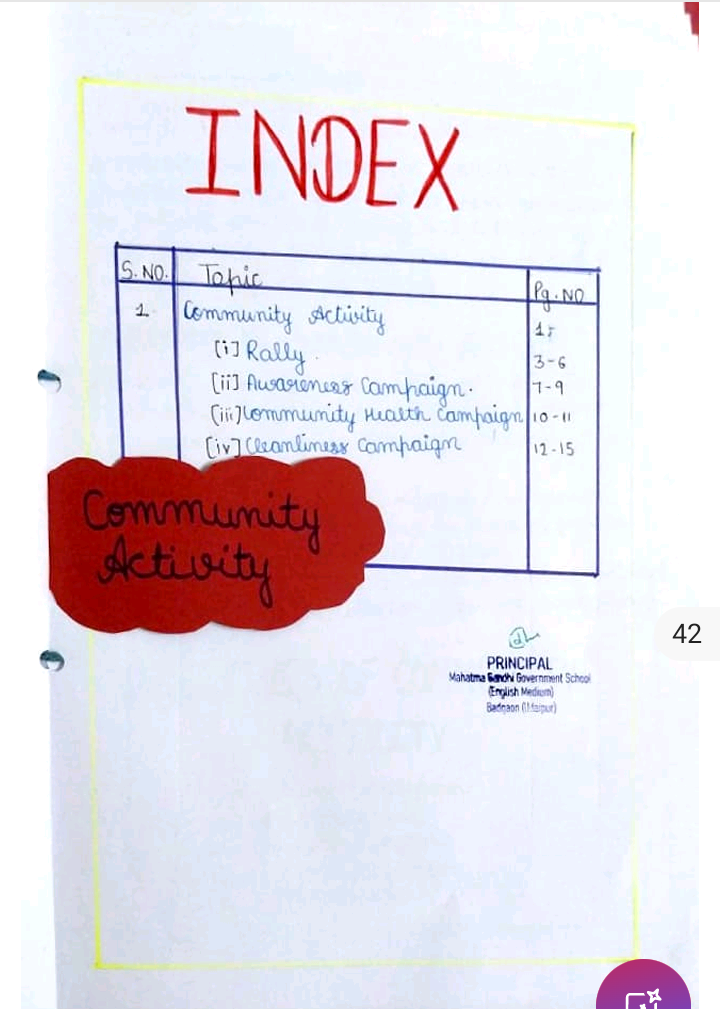 INDEX
S. NO. Topic Pg. NO
1. Community Activity 1
[i] Rally. 3-6
[ii] Awareness Campaign. 7-9
[iii] Community Health Campaign 10-11
[iv] Cleanliness Campaign 12-15
Community
Activity
42
PRINCIPAL
Mahatma Gandhi Government School
(English Medium)
Badgaon (Udaipur)